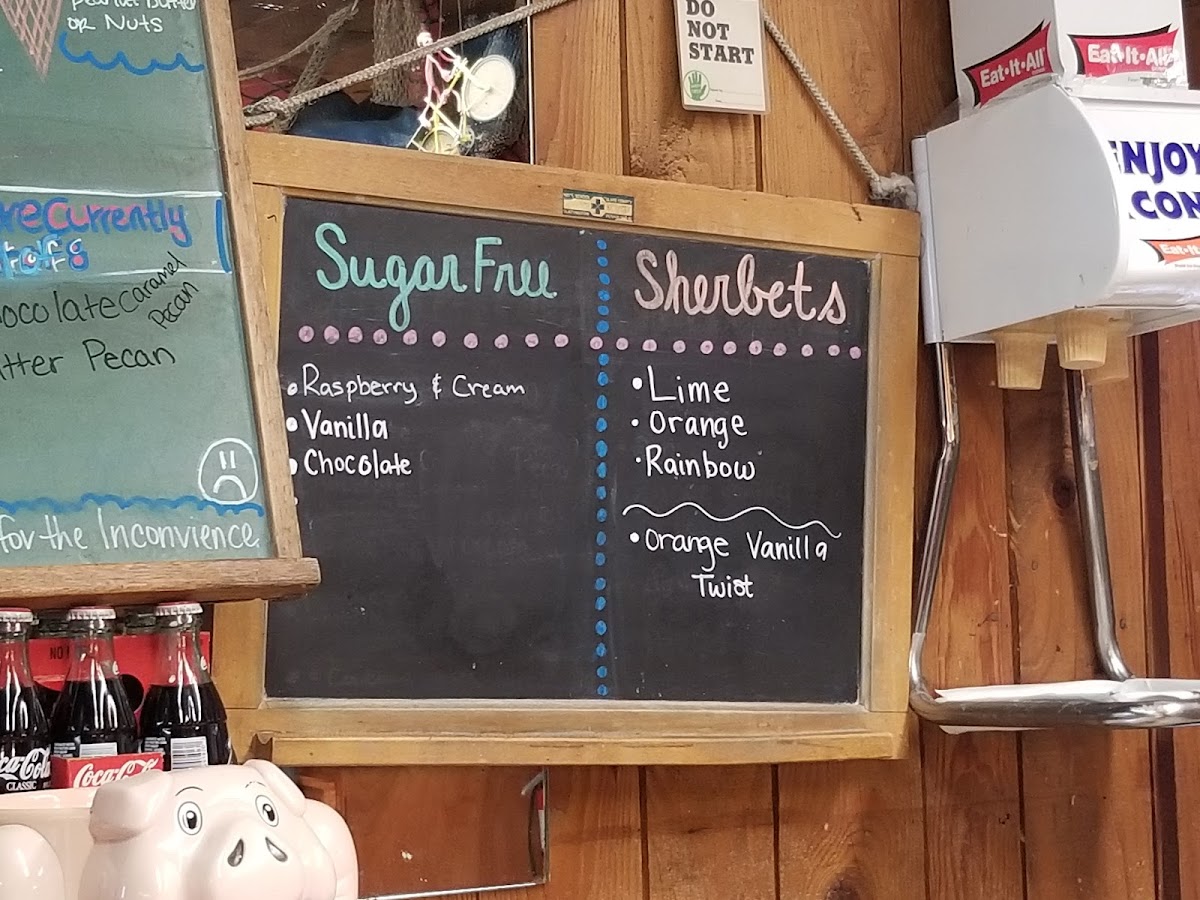 or Nuts
Currently
Chocolate Caramel
Pecan
Butter Pecan
for the Inconvience.
DO
NOT
START
Sugar Free
• Raspberry & Cream
• Vanilla
• Chocolate
Sherbets
• Lime
• Orange
• Rainbow
• Orange Vanilla
Twist
Eat•It•All
Eat•It•All
ENJOY
CON
Eat-It
Coca-Cola
CLASSIC
Coca-Cola